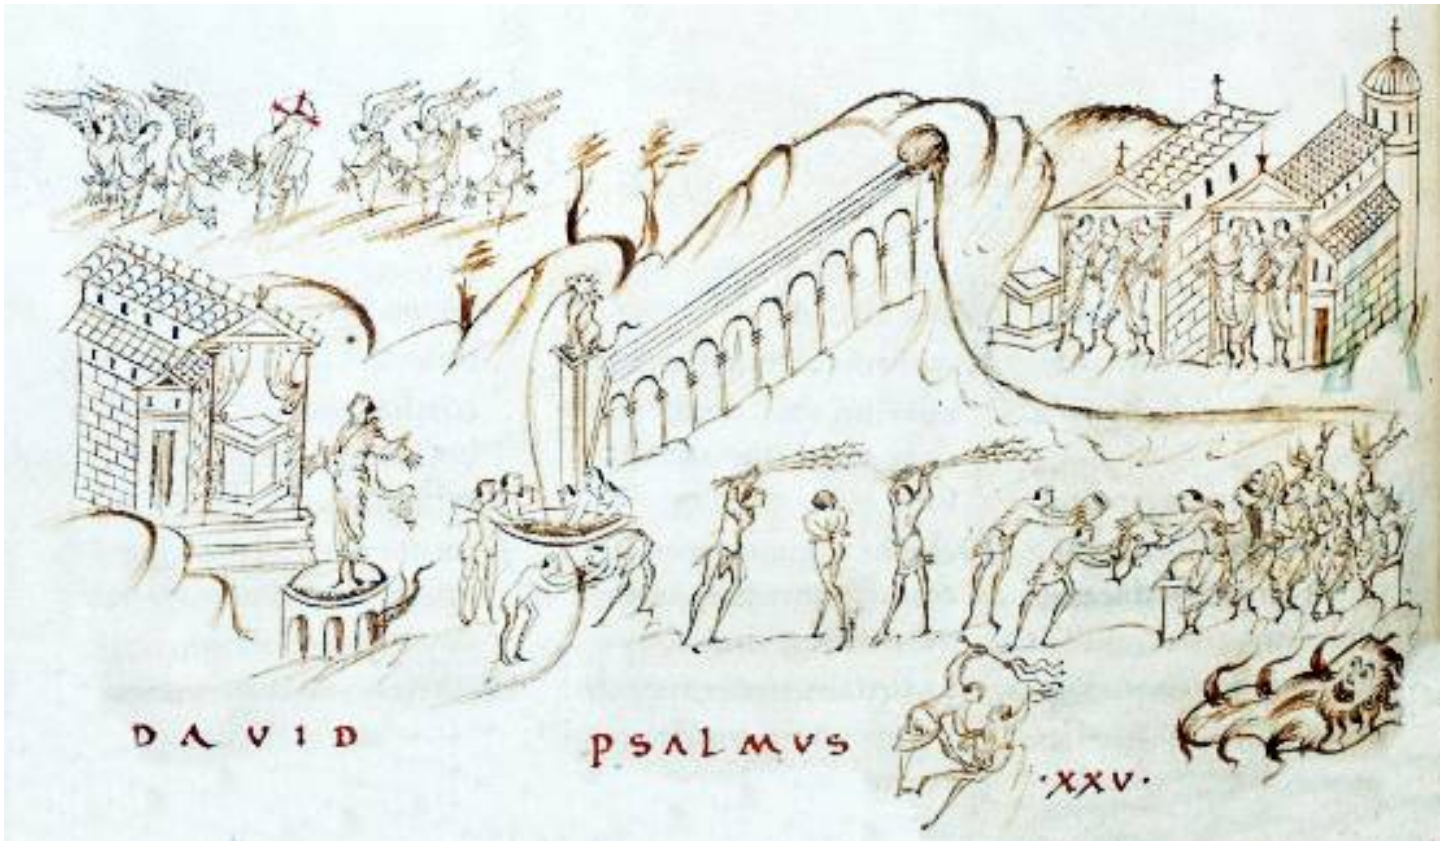 DAVID PSALMUS
·XXV·